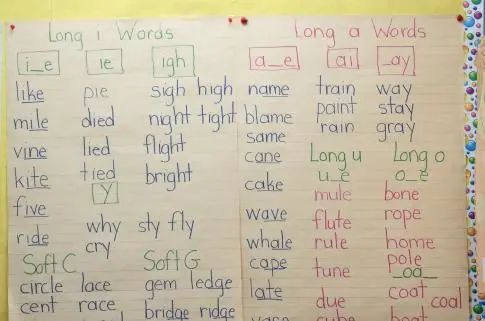 Long i Words
i_e ie igh
like pie sigh high
mile died night tight
vine lied flight
kite tied bright
Y
five
why sty fly
ride
cry
Soft C Soft G
circle lace gem ledge
cent race bridge ridge
Long a Words
a_e ai _ay
name train way
blame paint stay
same rain gray
cane Long u Long o
u_e o_e
cake mule bone
wave flute rope
whale rule home
cape tune pole
_oa_
late coat
due coal
cube boat